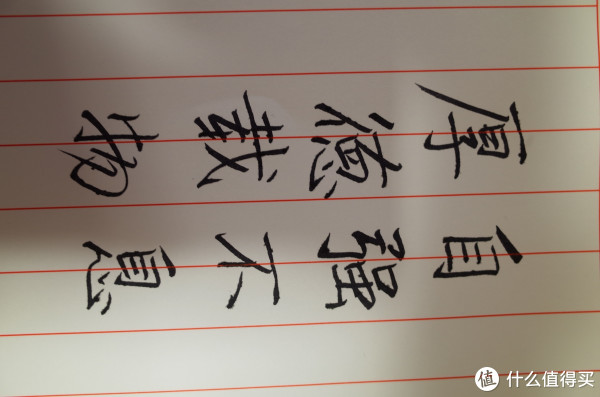 自强不息
厚德载物
什么值得买